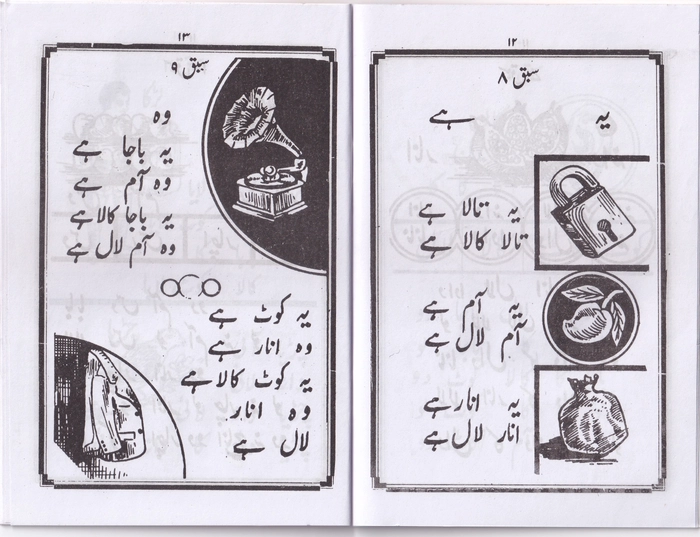 ١٢
سبق ٨
یہ ہے
یہ تالا ہے
تالا کالا ہے
یہ آم ہے
آم لال ہے
یہ انار ہے
انار لال ہے
١٣
سبق ٩
وہ
یہ باجا ہے
وہ آم ہے
یہ باجا کالا ہے
وہ آم لال ہے
یہ کوٹ ہے
وہ انار ہے
یہ کوٹ کالا ہے
وہ انار
لال ہے